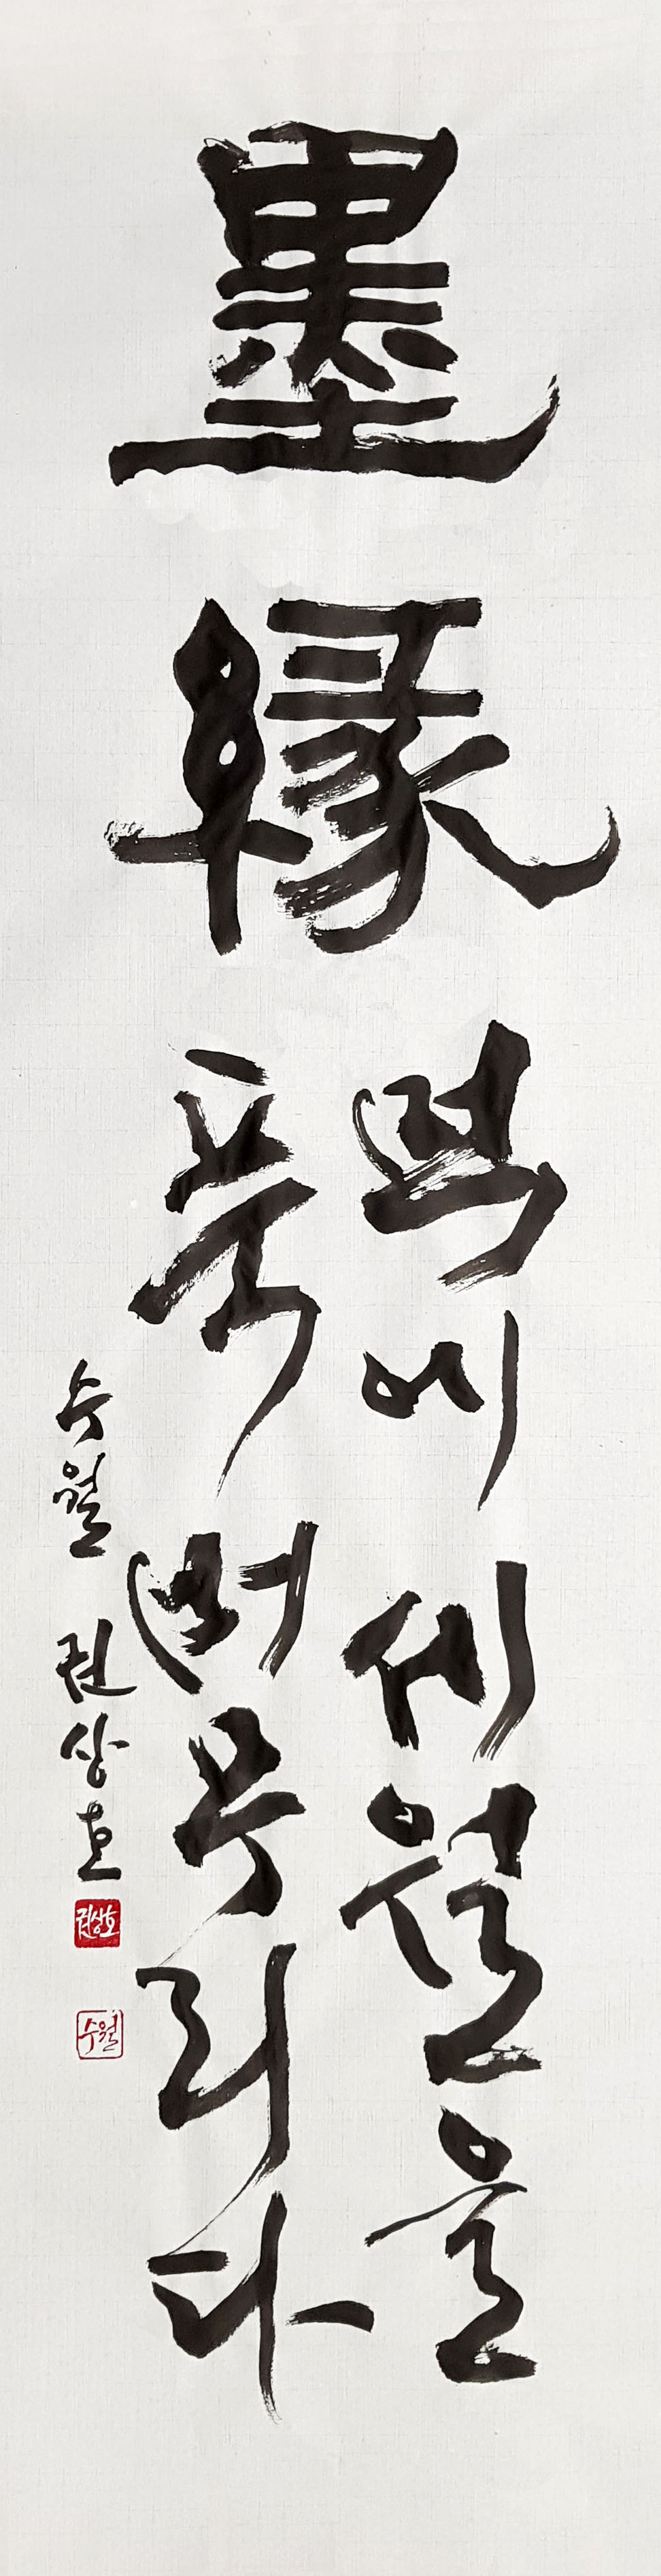 墨緣
먹에 세월을
푹 버무리다
수월 권상호
권상호
수월